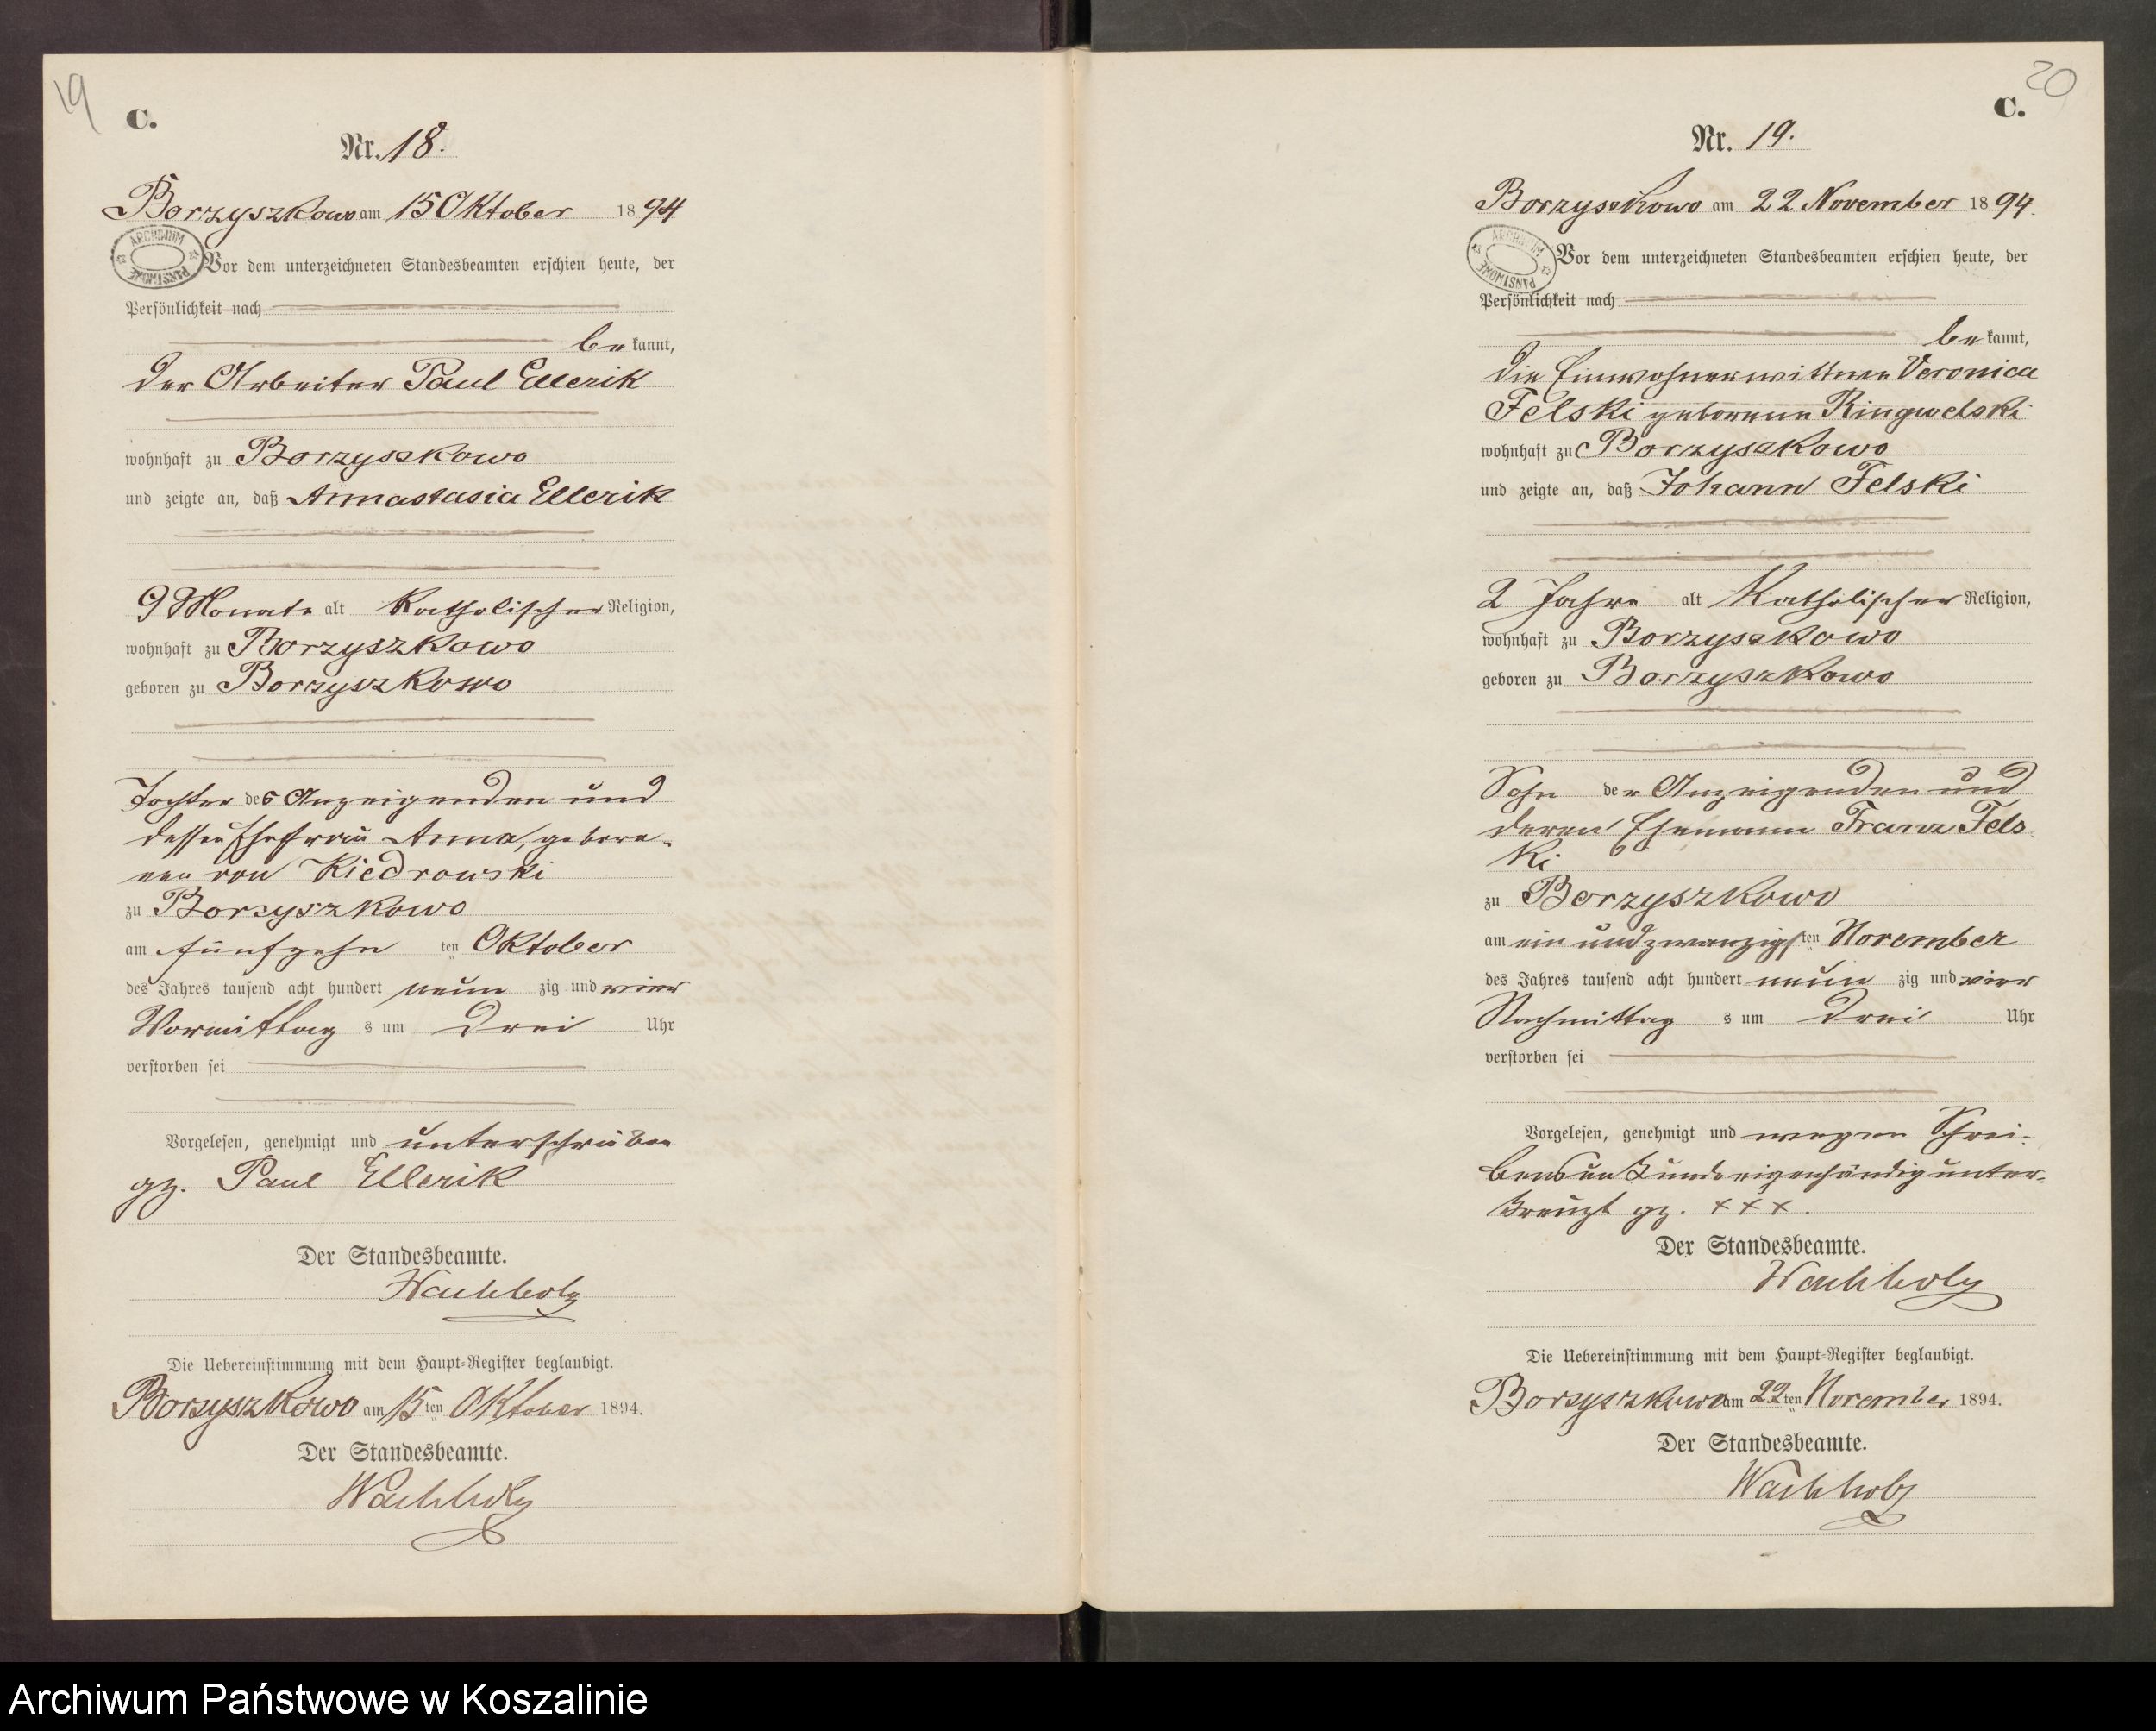 19
C.
Nr. 18.
Borzyszkowo am 15 Oktober 1894
ARCHIWUM PAŃSTWOWE
Vor dem unterzeichneten Standesbeamten erschien heute, der
Persönlichkeit nach
bekannt,
der Arbeiter Paul Ellerik
wohnhaft zu Borzyszkowo
und zeigte an, daß Annastasia Ellerik
9 Monate alt katholischer Religion,
wohnhaft zu Borzyszkowo
geboren zu Borzyszkowo
Tochter des Anzeigenden und
dessen Ehefrau Anna, gebore-
nen von Kiedrowski
zu Borzyszkowo
am fünfzehnten Oktober
des Jahres tausend acht hundert neunzig und vier
Vormittags um drei Uhr
verstorben sei
Vorgelesen, genehmigt und unterschrieben
gz. Paul Ellerik
Der Standesbeamte.
Wachholz
Die Uebereinstimmung mit dem Haupt-Register beglaubigt.
Borzyszkowo am 15ten Oktober 1894.
Der Standesbeamte.
Wachholz
20
C.
Nr. 19.
Borzyszkowo am 22 November 1894.
ARCHIWUM PAŃSTWOWE
Vor dem unterzeichneten Standesbeamten erschien heute, der
Persönlichkeit nach
bekannt,
die Einwohnerwittwe Veronica
Felski geborene Ringwelski
wohnhaft zu Borzyszkowo
und zeigte an, daß Johann Felski
2 Jahre alt katholischer Religion,
wohnhaft zu Borzyszkowo
geboren zu Borzyszkowo
Sohn der Anzeigenden und
deren Ehemann Franz Fels
ki
zu Borzyszkowo
am ein und zwanzigsten November
des Jahres tausend acht hundert neunzig und vier
Nachmittags um drei Uhr
verstorben sei
Vorgelesen, genehmigt und wegen Schrei-
bensunkunde eigenhändig unter-
kreuzt gz. + + +.
Der Standesbeamte.
Wachholz
Die Uebereinstimmung mit dem Haupt-Register beglaubigt.
Borzyszkowo am 22ten November 1894.
Der Standesbeamte.
Wachholz
Archiwum Państwowe w Koszalinie